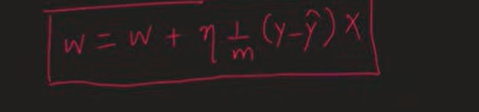 w = w + η 1/m (y - ŷ) x